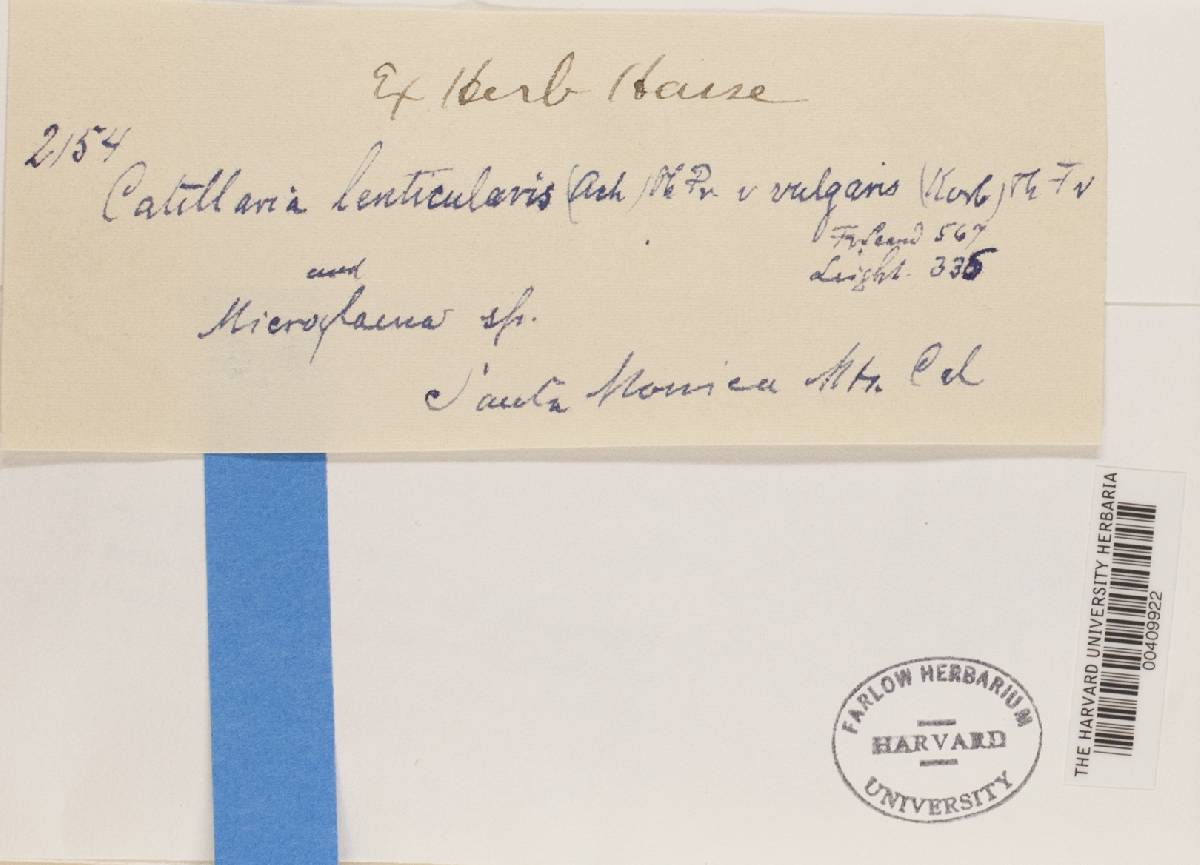 Ex Herb Hasse
2154
Catillaria lenticularis (Ach) Th Fr v vulgaris (Korb) Th Fr
567
Leight. 335
and
Microglaena sp.
Santa Monica Mts Cal
THE HARVARD UNIVERSITY HERBARIA
00409922
FARLOW HERBARIUM
HARVARD
UNIVERSITY